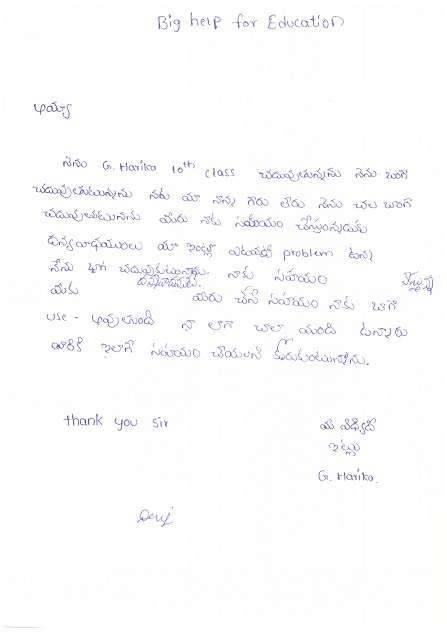 Big help for Education
అయ్యా
నేను G. Harika 10th class చదువుతున్నాను నేను బాగా
చదువుకుంటున్నాను నాకు మా నాన్న గారు లేరు నేను చాల బాగా
చదువుకుంటునను మీరు నాకు సహయం చేస్తున్నందుకు
ధన్యవాధములు మా ఇంట్లో ఎటువంటి problem ఉన్నా
నేను బాగా చదువుకుంటున్నాను. నాకు సహయం
మీకు ధన్యవాదములు. మీరు చేసే సహయం నాకు బాగా
use - అవుతుంది నా లాగా చాలా మంది ఉన్నారు
వారికి ఇలాగే సహయం చేయలని కోరుకుంటున్నాను.
thank you sir
మీ విధ్యేది
ఇట్లు
G. Harika.